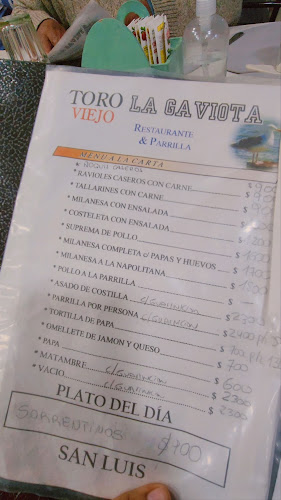 TORO VIEJO
LA GAVIOTA
RESTAURANTE
& PARRILLA
MENU A LA CARTA
* ÑOQUIS CASEROS
* RAVIOLES CASEROS CON CARNE $ 900
* TALLARINES CON CARNE $ 900
* MILANESA CON ENSALADA $
* COSTELETA CON ENSALADA $
* SUPREMA DE POLLO $ 1200
* MILANESA COMPLETA c/ PAPAS Y HUEVOS $ 1500
* MILANESA A LA NAPOLITANA $ 1300
* POLLO A LA PARRILLA $
* ASADO DE COSTILLA c/GUARNICION $ 2300
* PARRILLA POR PERSONA c/GUARNICION $ 2400
* TORTILLA DE PAPA $ 700
* OMELLETE DE JAMON Y QUESO $ 700
* PAPA $ 600
* MATAMBRE c/GUARNICION $ 2300
* VACIO c/GUARNICION $ 2300
PLATO DEL DÍA
SORRENTINOS $700
SAN LUIS